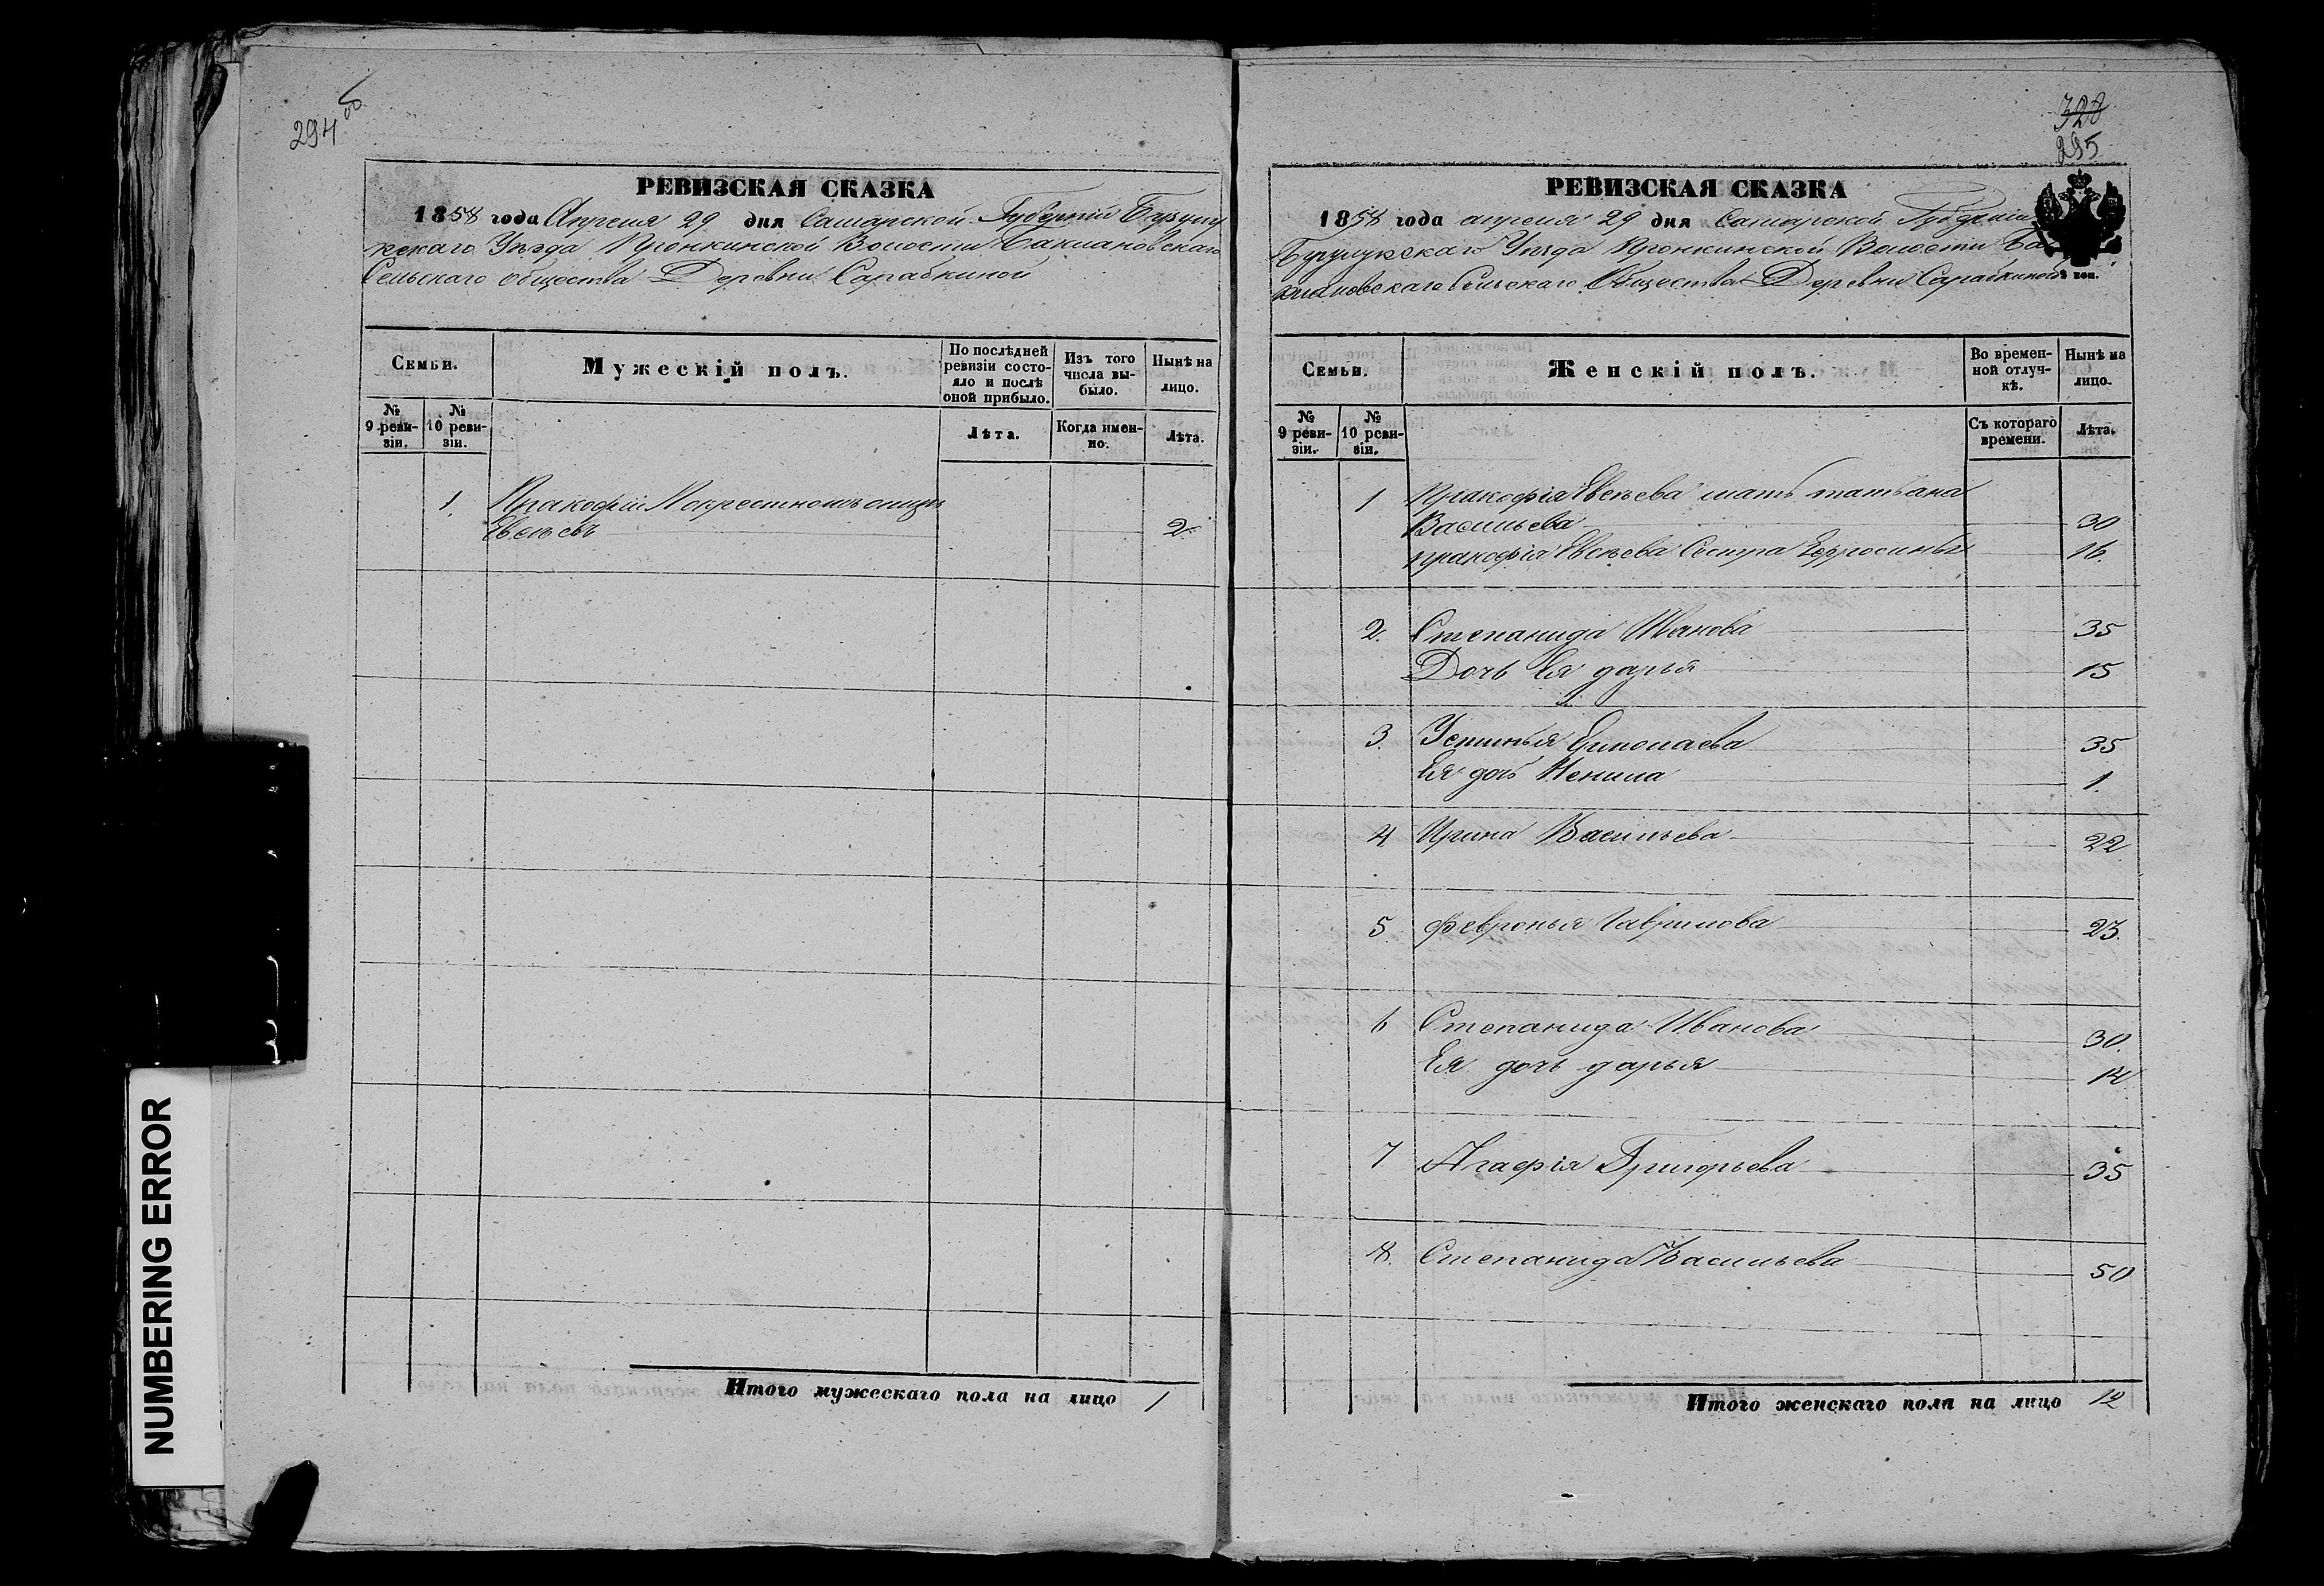 294 об
РЕВИЗСКАЯ СКАЗКА
1858 года Апреля 29 дня Самарской Губерніи Бузулу
кскаго Уезда Пронкинской Волости Баклановскаго
Сельскаго общества Деревни Сарабкиной
Семьи.
Мужескій полъ.
По послѣдней ревизіи состояло и послѣ оной прибыло.
Изъ того числа выбыло.
Нынѣ на лицо.
№ 9 ревизіи.
№ 10 ревизіи.
Лѣта.
Когда именно.
Лѣта.
1. Пракофій По крестномъ отцѣ
Евсѣевъ 2
Итого мужескаго пола на лицо 1
328
295
РЕВИЗСКАЯ СКАЗКА
1858 года апреля 29 дня Самарской Губерніи
Бузулукскаго Уезда Пронкинской Волости Ба
клановскаго Сельскаго Общества Деревни Сарабкиной
коп.
Семьи.
Женскій полъ.
Во временной отлучкѣ.
Нынѣ на лицо.
№ 9 ревизіи.
№ 10 ревизіи.
Съ котораго времени.
Лѣта.
1 Пракофія Евсѣева мать татьяна
Васильева 30
пракофія Евсѣева Сестра Ефросинья 16.
2. Степанида Иванова 35
Дочь Ея дарья 15
3. Устинья Ермолаева 35
Ея дочь Ненила 1.
4 Ирина Васильева 22.
5. Февронья Гаврилова 23.
6 Степанида Иванова 30.
Ея дочь дарья 14
7 Агафія Григорьева 35
8. Степанида Васильева 50
Итого женскаго пола на лицо 12
NUMBERING ERROR